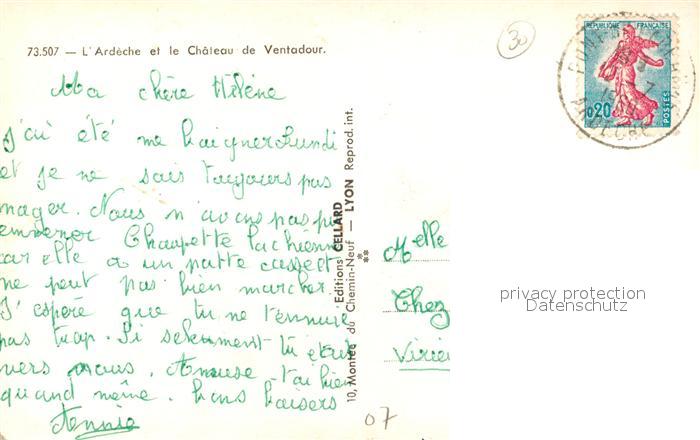 73.507 — L'Ardèche et le Château de Ventadour.
30
REPUBLIQUE FRANÇAISE
0,20
POSTES
Ma chère Hélène
J'ai été me baigner Lundi
et je ne sais toujours pas
nager. Nous n'avons pas pu
emmener Choupette la chienne
car elle a un patte cassée et
ne peut pas bien marcher.
J'espère que tu ne t'ennuie
pas trop. Si seulement tu étais
vers nous. Amuse-tai bien
quand même. bons baisers
Annie
Editions CELLARD
10, Montée du Chemin-Neuf — LYON Reprod. int.
Melle
Chez
Virieu
privacy protection
Datenschutz
07